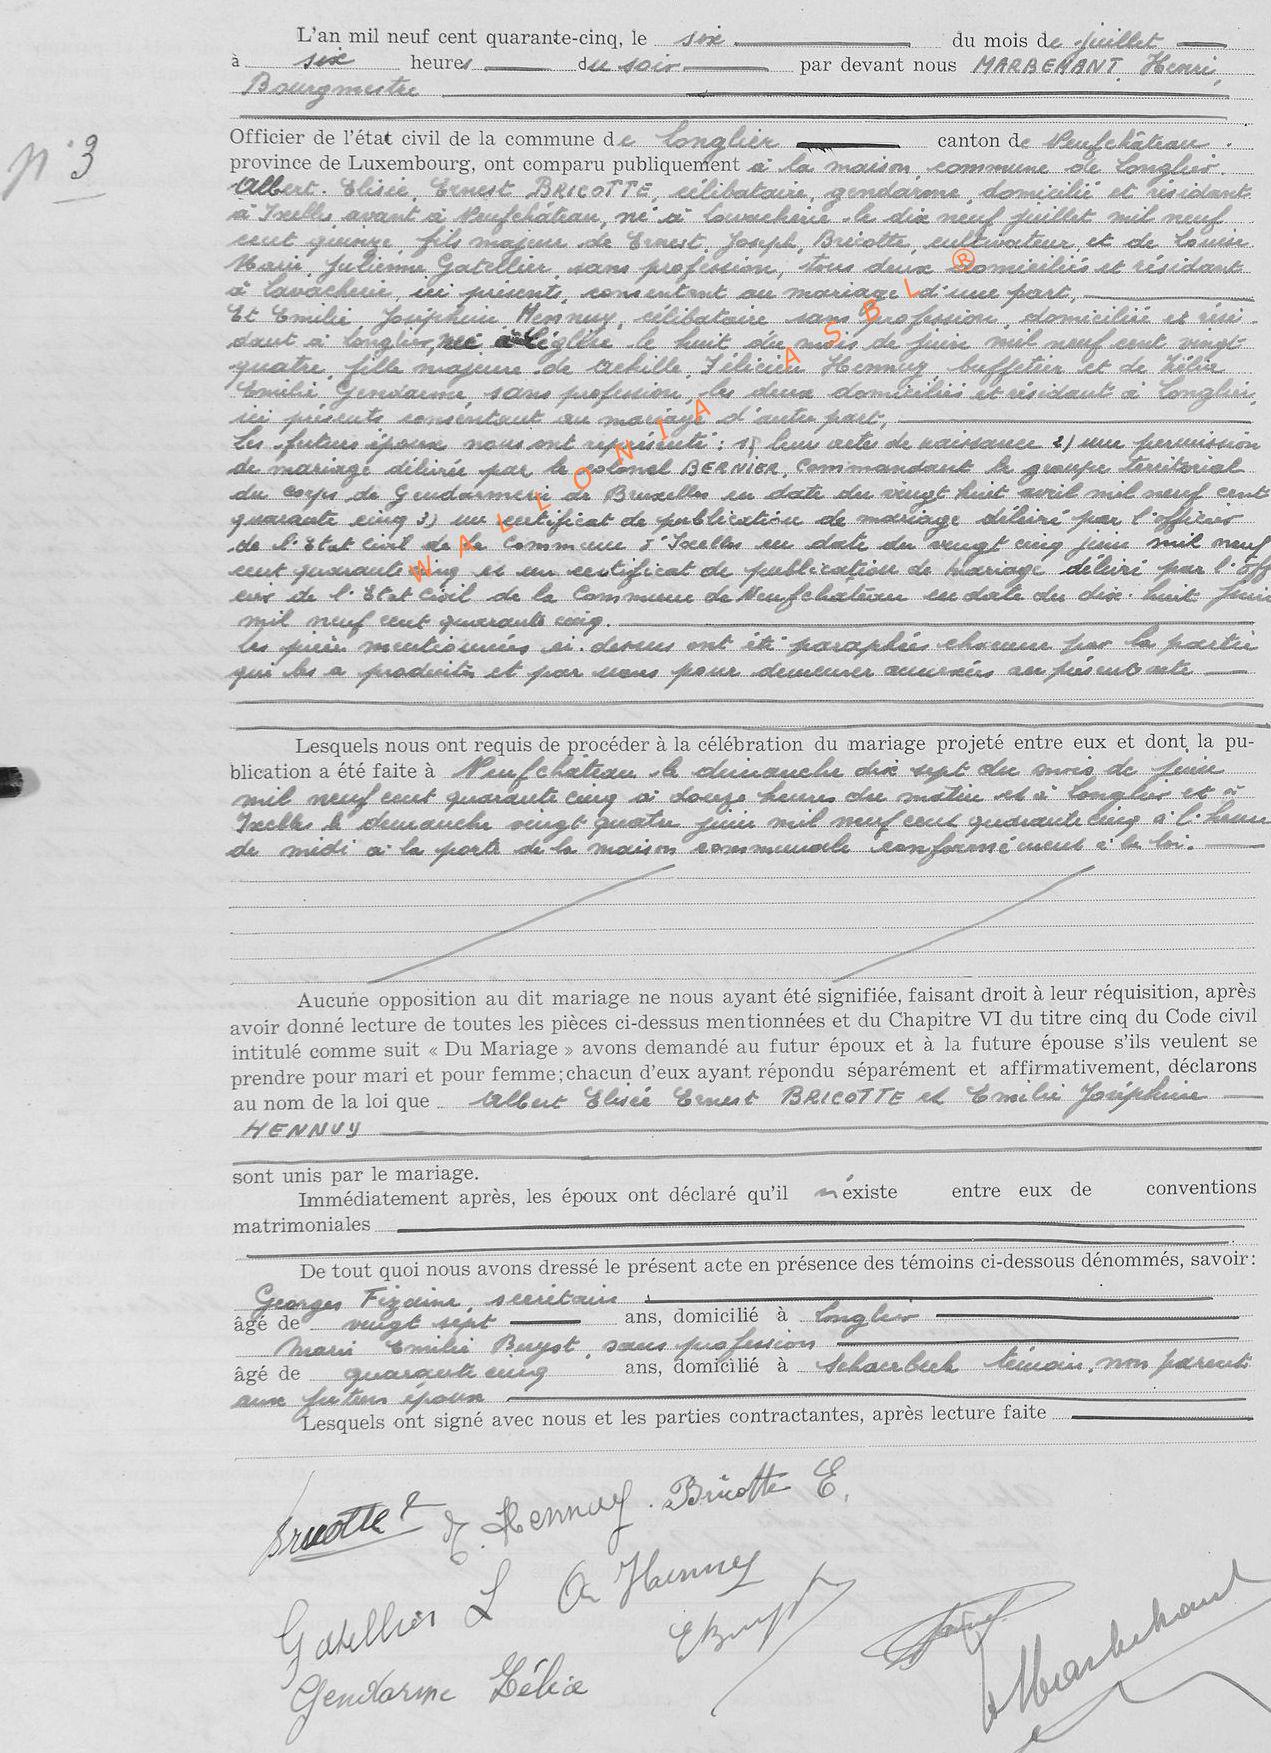 L'an mil neuf cent quarante-cinq, le six du mois de juillet
à six heures du soir par devant nous MARBEHANT Henri,
Bourgmestre
N°3
Officier de l'état civil de la commune de Longlier canton de Neufchâteau.
province de Luxembourg, ont comparu publiquement à la maison commune de Longlier.
Albert Elisée Ernest BRICOTTE, célibataire, gendarme, domicilié et résidant
à Ixelles avant à Neufchâteau, né à Lavacherie le dix neuf juillet mil neuf
cent quinze, fils majeur de Ernest Joseph Bricotte, cultivateur et de Louise
Marie Julienne Gatellier, sans profession, tous deux domiciliés et résidant
à Lavacherie, ici présents, consentant au mariage d'une part,
Et Emilie Joséphine Hennuy, célibataire sans profession, domiciliée et rési-
dant à Longlier, née à Léglise le huit du mois de juin mil neuf cent vingt-
quatre, fille majeure de Achille Félicien Hennuy, buffetier et de Zélie
Emilie Gendarme, sans profession, les deux domiciliés et résidant à Longlier,
ici présents consentant au mariage d'autre part,
Les futurs époux nous ont représenté : 1) leur actes de naissance 2) une permission
de mariage délivrée par le colonel BERNIER, Commandant le groupe territorial
du Corps de Gendarmerie de Bruxelles en date du vingt huit avril mil neuf cent
quarante cinq 3) un certificat de publication de mariage délivré par l'officier
de l'Etat Civil de la Commune d'Ixelles en date du vingt cinq juin mil neuf
cent quarante cinq et un certificat de publication de mariage délivré par l'Off
cier de l'Etat Civil de la Commune de Neufchâteau en date du dix-huit juin
mil neuf cent quarante cinq.
Les pièces mentionnées ci-dessus ont été paraphées chacune par la partie
qui les a produites et par nous pour demeurer annexées au présent acte
Lesquels nous ont requis de procéder à la célébration du mariage projeté entre eux et dont la pu-
blication a été faite à Neufchâteau le dimanche dix sept du mois de juin
mil neuf cent quarante cinq à douze heures du matin et à Longlier et à
Ixelles le dimanche vingt quatre juin mil neuf cent quarante cinq à l'heure
de midi à la porte de la maison communale conformément à la loi.
Aucune opposition au dit mariage ne nous ayant été signifiée, faisant droit à leur réquisition, après
avoir donné lecture de toutes les pièces ci-dessus mentionnées et du Chapitre VI du titre cinq du Code civil
intitulé comme suit « Du Mariage » avons demandé au futur époux et à la future épouse s'ils veulent se
prendre pour mari et pour femme; chacun d'eux ayant répondu séparément et affirmativement, déclarons
au nom de la loi que Albert Elisée Ernest BRICOTTE et Emilie Joséphine
HENNUY
sont unis par le mariage.
Immédiatement après, les époux ont déclaré qu'il n'existe entre eux de conventions
matrimoniales
De tout quoi nous avons dressé le présent acte en présence des témoins ci-dessous dénommés, savoir:
Georges Fizaine, secrétaire
âgé de vingt sept ans, domicilié à Longlier
Marie Emilie Buyst, sans profession
âgé de quarante cinq ans, domicilié à Schaerbeek témoins, non parents
aux futurs époux
Lesquels ont signé avec nous et les parties contractantes, après lecture faite
Bricotte E. Hennuy. Bricotte E.
Gatellier L A Hennuy
EBuyst
Gendarme Zélie
Marbehant
WALLONIA ASBL ®